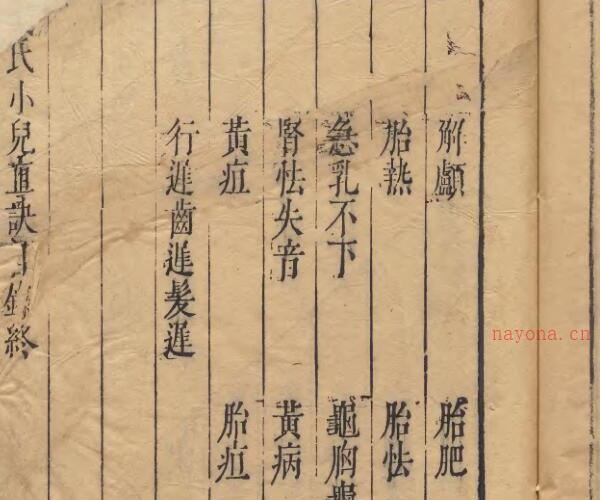 解顱　胎肥
胎熱　胎怯
急乳不下　龜胸龜
腎怯失音　黃病
黃疸　胎疸
行遲齒遲髮遲
氏小兒直訣目錄終
nayona.cn